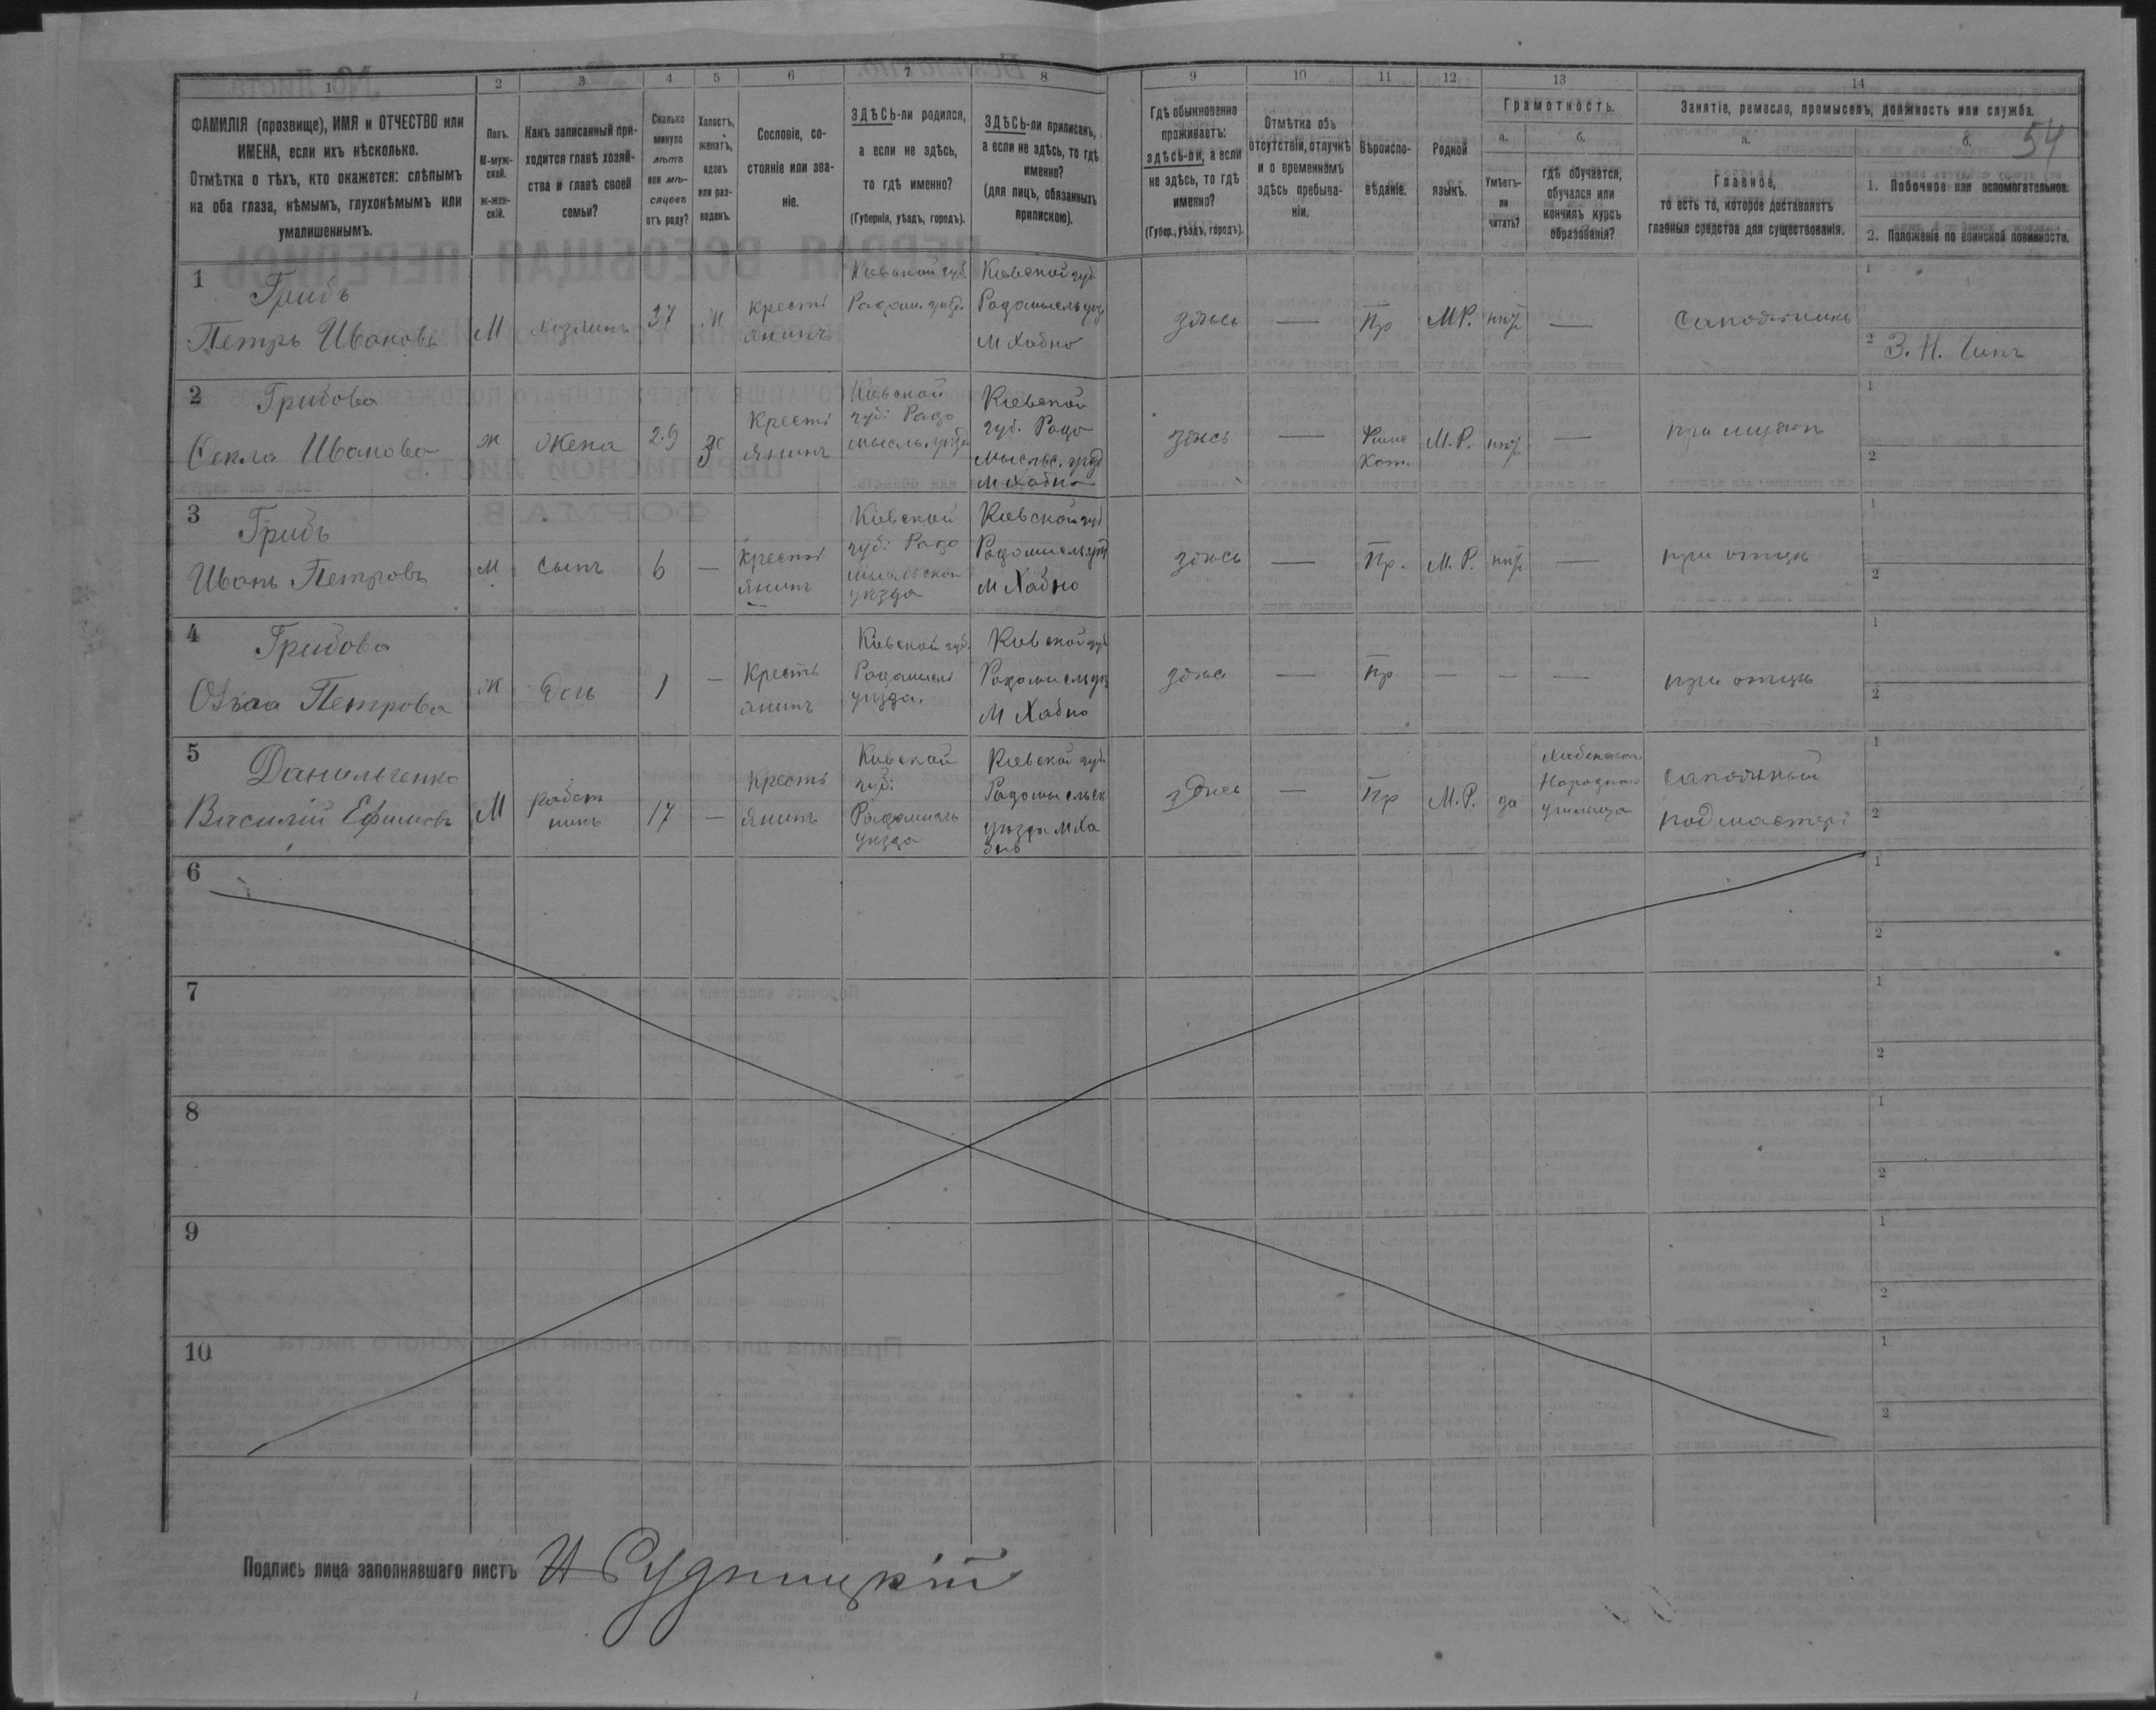 1 2 3 4 5 6 7 8 9 10 11 12 13 14
54
ФАМИЛІЯ (прозвище), ИМЯ и ОТЧЕСТВО или
ИМЕНА, если ихъ нѣсколько.
Отмѣтка о тѣхъ, кто окажется: слѣпымъ
на оба глаза, нѣмымъ, глухонѣмымъ или
умалишеннымъ.
Полъ.
М-муж-
ской.
ж-жен-
скій.
Какъ записанный при-
ходится главѣ хозяй-
ства и главѣ своей
семьи?
Сколько
минуло
лѣтъ
или мѣ-
сяцевъ
отъ роду?
Холостъ,
женатъ,
вдовъ
или раз-
веденъ.
Сословіе, со-
стояніе или зва-
ніе.
ЗДѢСЬ-ли родился,
а если не здѣсь,
то гдѣ именно?
(Губернія, уѣздъ, городъ).
ЗДѢСЬ-ли приписанъ,
а если не здѣсь, то гдѣ
именно?
(для лицъ, обязанныхъ
припискою).
Гдѣ обыкновенно
проживаетъ:
здѣсь-ли, а если
не здѣсь, то гдѣ
именно?
(Губер., уѣздъ, городъ).
Отмѣтка объ
отсутствіи, отлучкѣ
и о временномъ
здѣсь пребыва-
ніи.
Вѣроиспо-
вѣданіе.
Родной
языкъ.
Грамотность.
а.
Умѣетъ-
ли
читать?
б.
гдѣ обучается,
обучался или
кончилъ курсъ
образованія?
Занятіе, ремесло, промыселъ, должность или служба.
а.
Главное,
то есть то, которое доставляетъ
главныя средства для существованія.
б.
1. Побочное или вспомогательное.
2. Положеніе по воинской повинности.
1
Грибъ
Петръ Ивановъ
М
хозяинъ
37
Ж
Крестѣ
янинъ
Кіевской губ.
Радом. уѣзд.
Кіевской губ
Радомысль уѣз
М Хабно
здѣсь
—
Пр
М.Р.
нѣт
—
Сапожникъ
1
2
З. Н. Чинъ
2
Грибова
Секла Иванова
Ж
Жена
29
З
Крестѣ
янинъ
Кіевской
губ: Радо
мысль. уѣзда
Кіевской
губ. Радо
мысльс. уѣзд
М Хабно
здѣсь
—
Кат.
М.Р.
нѣт
—
при мужѣ
1
2
3
Грибъ
Иванъ Петровъ
М
Сынъ
6
—
Крестѣ
янинъ
Кіевской
губ: Радо
мысльской
уѣзда
Кіевской губ
Радомысль уѣзд
М Хабно
здѣсь
—
Пр.
М.Р.
нѣт
—
при отцѣ
1
2
4
Грибова
Петрова
Ж
Дочь
1
—
Крестѣ
янинъ
Кіевской губ.
Радомысль
уѣзда.
Кіевской губ
Радомысль уѣ
М Хабно
здѣсь
—
Пр.
—
—
—
при отцѣ
1
2
5
Данильченко
Василій Ефимовъ
М
работ
никъ
17
—
Крестѣ
янинъ
Кіевской
губ:
Радомысль
уѣзда
Кіевской губ.
Радомысльск
уѣзда М Ха
бнѣ
здѣсь
—
Пр
М.Р.
да
Народное
училище
сапожный
подмастерѣ
1
2
6
1
2
7
1
2
8
1
2
9
1
2
10
1
2
Подпись лица заполнявшаго листъ И Рудницкій